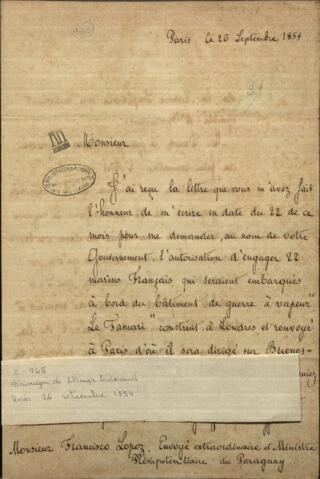 Paris le 26 Septembre 1854
Monsieur
J'ai reçu la lettre que vous m'avez fait
l'honneur de m'écrire en date du 22 de ce
mois pour me demander, au nom de votre
Gouvernement, l'autorisation d'engager 22
marins Français qui seraient embarqués
à bord du bâtiment de guerre à vapeur "
Le Tanari" construit à Londres et renvoyé
à Paris d'où il sera dirigé sur Buenos-
965
26 1854
Monsieur Francisco Lopez, Envoyé extraordinaire et Ministre
Plénipotentiaire du Paraguay